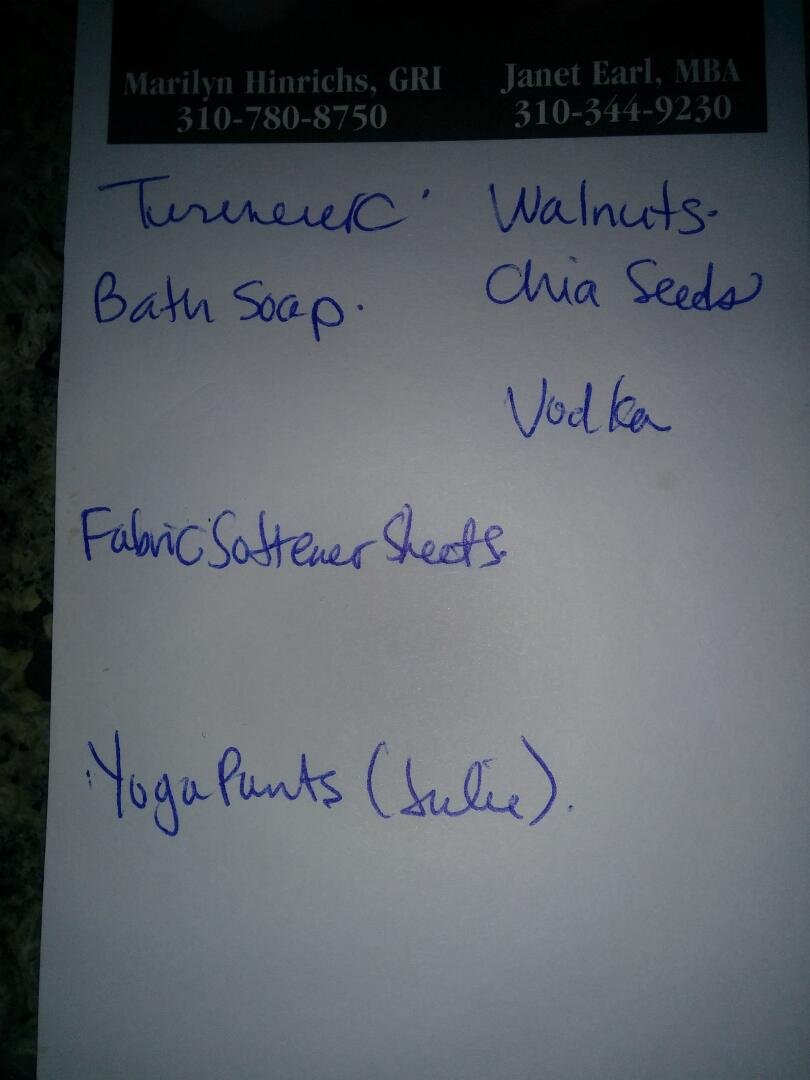 Marilyn Hinrichs, GRI Janet Earl, MBA
310-780-8750 310-344-9230
Turemeric Walnuts.
Bath Soap. Chia Seeds
Vodka
Fabric Softener Sheets.
Yoga Pants (Julie).